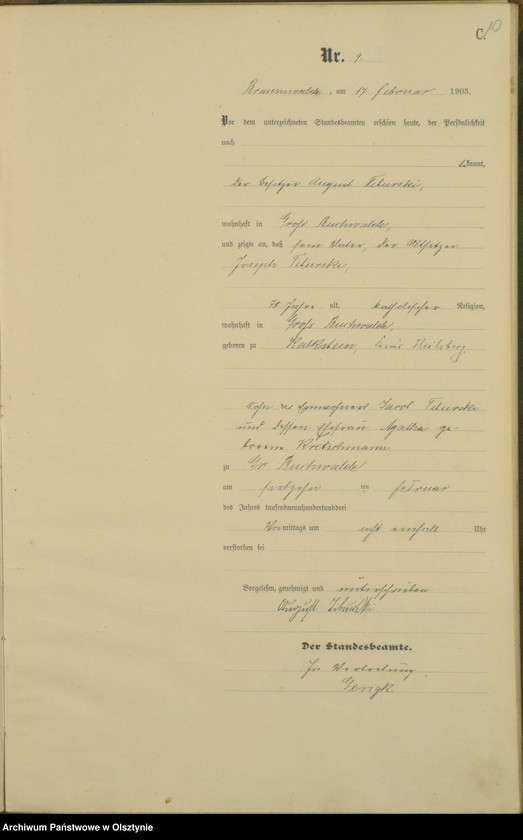 C.
10
Nr. 9.
Braunswalde, am 17 februar 1903.
Vor dem unterzeichneten Standesbeamten erschien heute, der Persönlichkeit
nach
kannt,
der Besitzer August
wohnhaft in Groß Buchwalde,
und zeigte an, daß sein Vater, der Altsitzer
Joseph
78 Jahre alt, katholischer Religion,
wohnhaft in Groß Buchwalde,
geboren zu Kalkstein, Kreis Heilsberg,
Sohn des Jacob
und dessen Ehefrau Agatha ge-
borene Kretschmann
zu Gr. Buchwalde
am siebzehn ten februar
des Jahres tausendneunhundertunddrei
Vormittags um acht einhalb Uhr
verstorben sei
Vorgelesen, genehmigt und unterschrieben
August
Der Standesbeamte.
In Vertretung
Gerigk
Archiwum Państwowe w Olsztynie